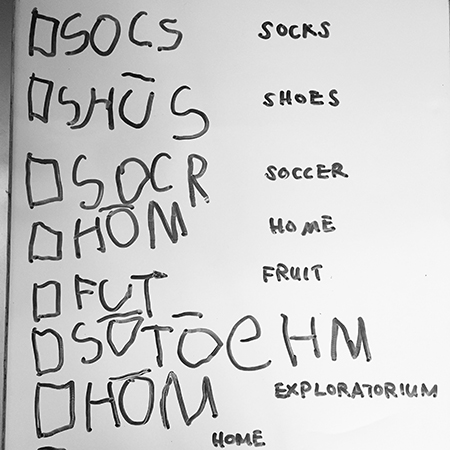 SOCS SOCKS
SHŪS SHOES
SOCR SOCCER
HŌM HOME
FUT FRUIT
SŌTŌeHM
HŌM EXPLORATORIUM
HOME